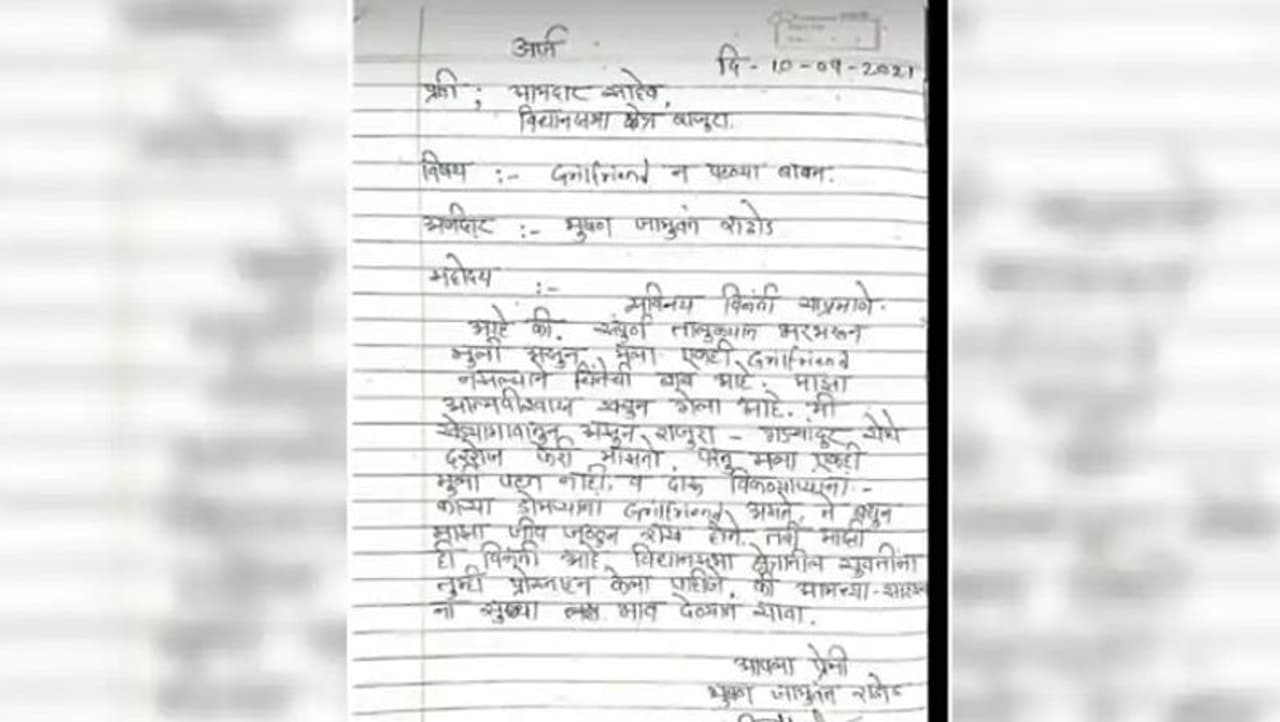 अर्ज
दि - 10-09-2021
प्रती ; आमदार साहेब,
विधानसभा क्षेत्र राजुरा.
विषय :- Grilfriend न पटण्या बाबत.
अर्जदार :- भुषण जामुवंत राठोड
महोदय :-
सविनय विनंती याप्रमाणे
आहे की. संपुर्ण तालुक्यात भरभरून
मुली असुन, मला एकही Grilfriend
नसल्याने चिंतेची बाब आहे. माझा
आत्मवीश्वास खचुन गेला आहे. मी
खेड्यागावातुन असुन राजुरा - गडचांदूर येथे
दररोज फेरी मारतो. परंतु मला एकही
मुली पटत नाही. व दारू विकणाऱ्याला -
काळ्या डोमळ्याना Grilfriend असते, ते बघुन
माझा जीव जळुन राख होते. तरी माझी
ही विनंती आहे. विधानसभा क्षेत्रातील युवतींना
तुम्ही प्रोत्साहन केला पाहीजे, की आमच्या-सारख्या
ना सुध्दा भाव देण्यात यावा.
आपला प्रेमी
भुषण जामुवंत राठोड